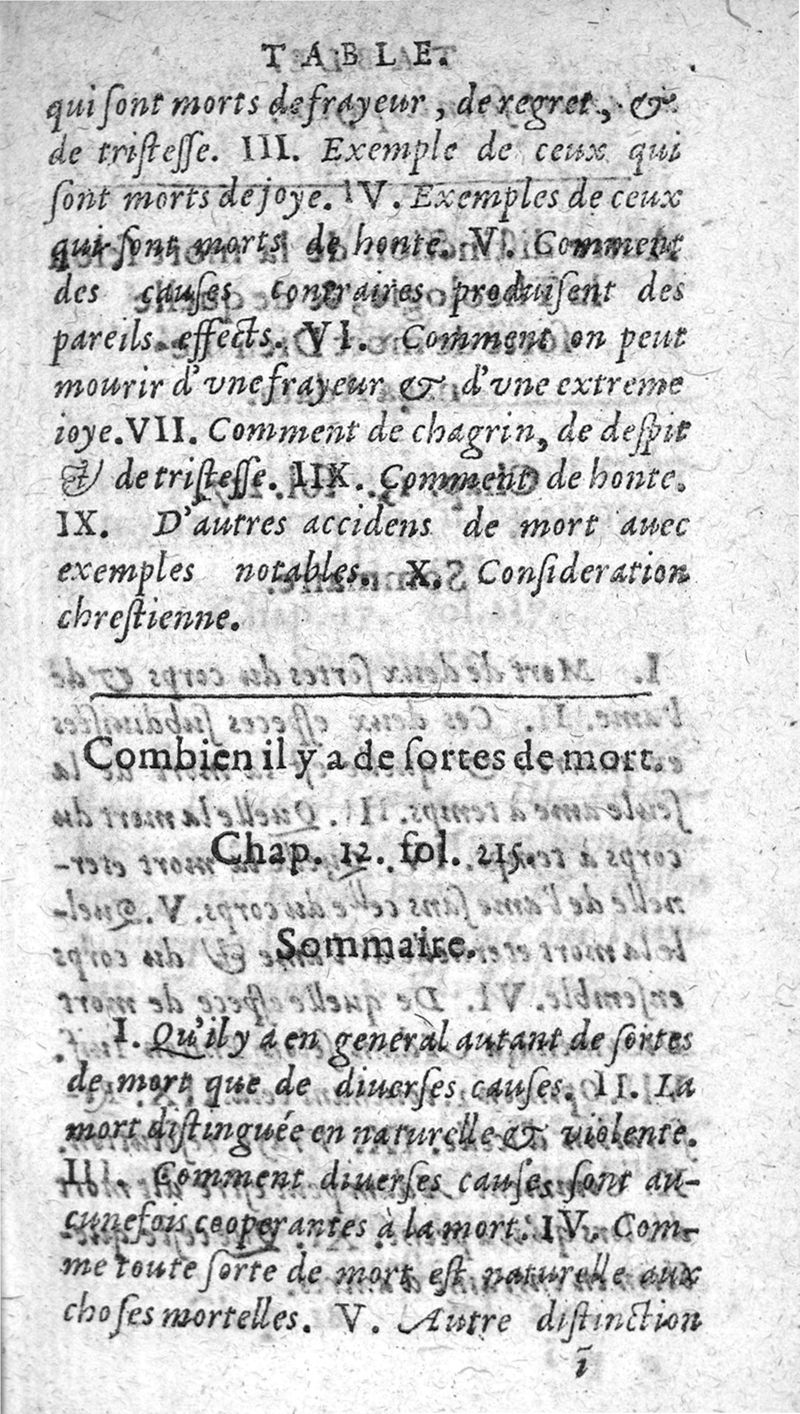 TABLE.
qui ſont morts de frayeur, de regret, &
de triſteſſe. III. Exemple de ceux qui
ſont morts de joye. IV. Exemples de ceux
qui ſont morts de honte. V. Comment
des cauſes contraires produiſent des
pareils effects. VI. Comment on peut
mourir d'vne frayeur & d'vne extreme
ioye. VII. Comment de chagrin, de deſpit
& de triſteſſe. IIX. Comment de honte.
IX. D'autres accidens de mort auec
exemples notables. X. Conſideration
chreſtienne.
Combien il y a de ſortes de mort.
Chap. 12. fol. 215.
Sommaire.
I. Qu'il y a en general autant de ſortes
de mort que de diuerſes cauſes. II. La
mort diſtinguée en naturelle & violente.
III. Comment diuerſes cauſes ſont au-
cunefois cooperantes à la mort. IV. Com-
me toute ſorte de mort eſt naturelle aux
choſes mortelles. V. Autre diſtinction
ī